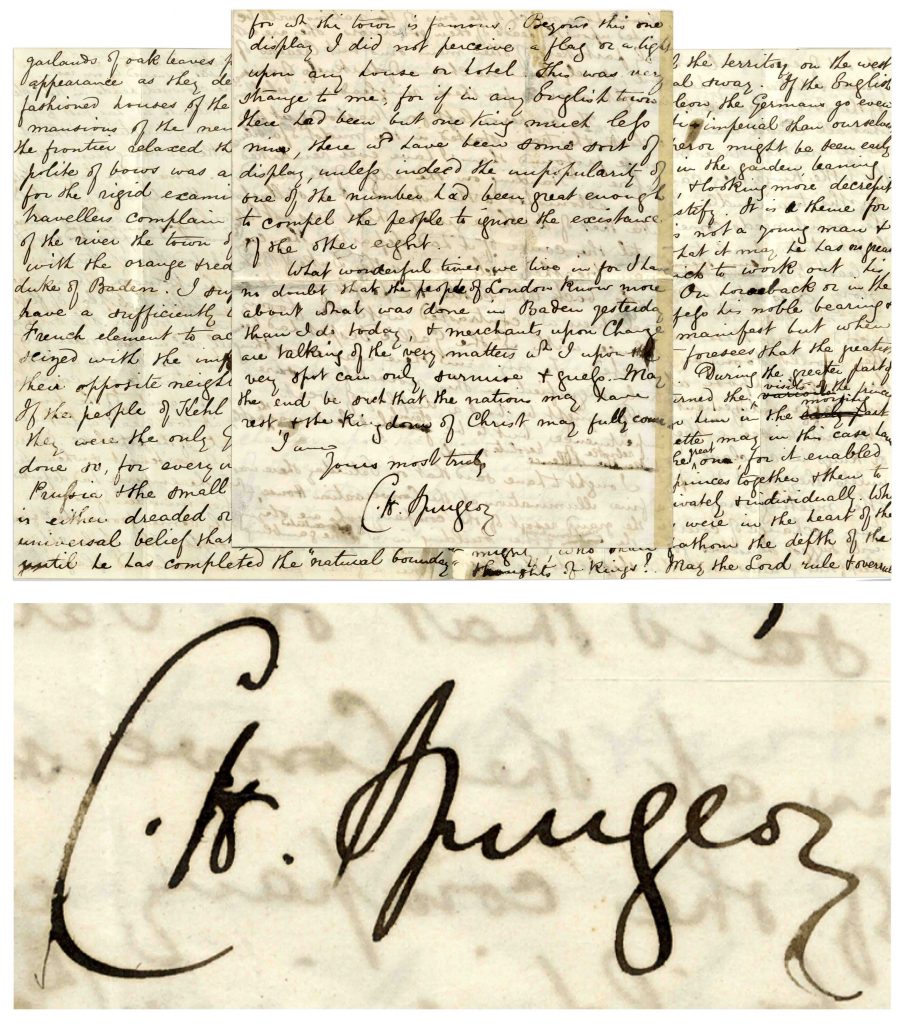 garlands of oak leaves
appearance as they de
fashioned houses of the
mansions of the
the frontier relaxed th
polite of bows was a
for the rigid exami
travellers complain
of the river the town
with the orange & red
duke of Baden. I
have a sufficiently
French element to ac
seized with the
their opposite neigh
If the people of Kehl
they were the only
done so, for every
Prussia & the small
is either dreaded or
universal belief that
until he has completed the "natural
for wh the town is famous. Beyond this one
display I did not perceive a flag or a light
upon any house or hotel. This was very
strange to me, for if in any English town
there had been but one king much less
nine, there wd have been some sort of
display, unless indeed the unpopularity of
one of the number had been great enough
to compel the people to ignore the existance
of the other eight.
What wonderful times we live in for I have
no doubt that the people of London know more
about what was done in Baden yesterday
than I do today, & merchants upon Change
are talking of the very matters wh I upon the
very spot can only surmise & guess. May
the end be such that the nations may have
rest & the kingdom of Christ may fully come
I am
Yours most truly
C. H. Spurgeon
the territory on the west
al sway. If the English
leon, the Germans go even
imperial than ourselves
eror might be seen early
in the garden leaning
& looking more decrepit
stify. It is a theme for
s not a young man &
hat it may he has
ch to work out his
On horseback or in the
his noble bearing &
manifest but when
foresees that the greatest
During the greater part
rned the various visits of the
him in the early part
ette may in this case
great one, for it enabled
princes together & them to
ivately & individually. Wh
were in the heart of the
might, who shall fathom the depth of the
thoughts of kings? May the Lord rule & overrule
C. H. Spurgeon